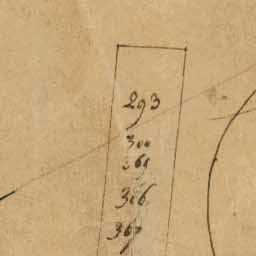 293
300
261
306
367